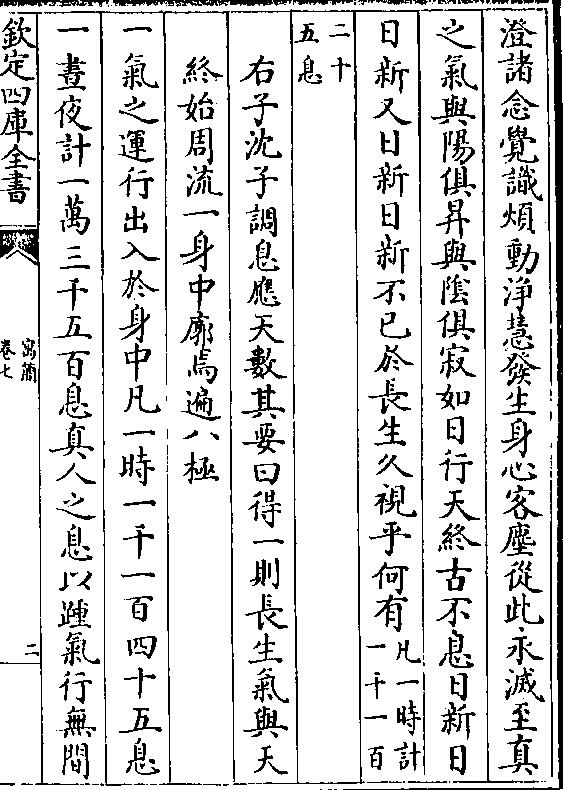 澄諸念覺識煩動浄慧發生身心客塵從此永滅至真
之氣與陽俱昇與陰俱寂如日行天終古不息日新日
日新又日新日新不已於長生久視乎何有凡一時計
一千一百
二十
五息
右子沈子調息應天數其要曰得一則長生氣與天
終始周流一身中廓焉遍八極
一氣之運行出入於身中凡一時一千一百四十五息
一晝夜計一萬三千五百息真人之息以踵氣行無間
欽定四庫全書
寓簡
卷七
二